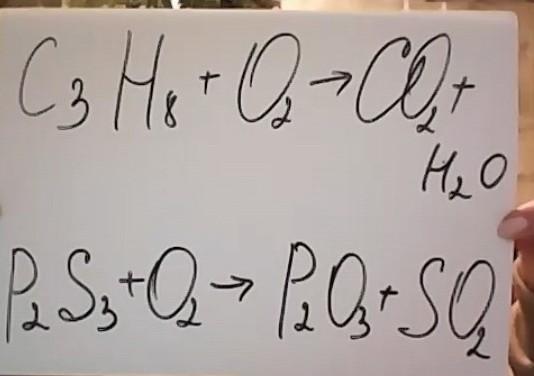 C₃H₈ + O₂ → CO₂ +
H₂O
P₂S₃ + O₂ → P₂O₃ + SO₂